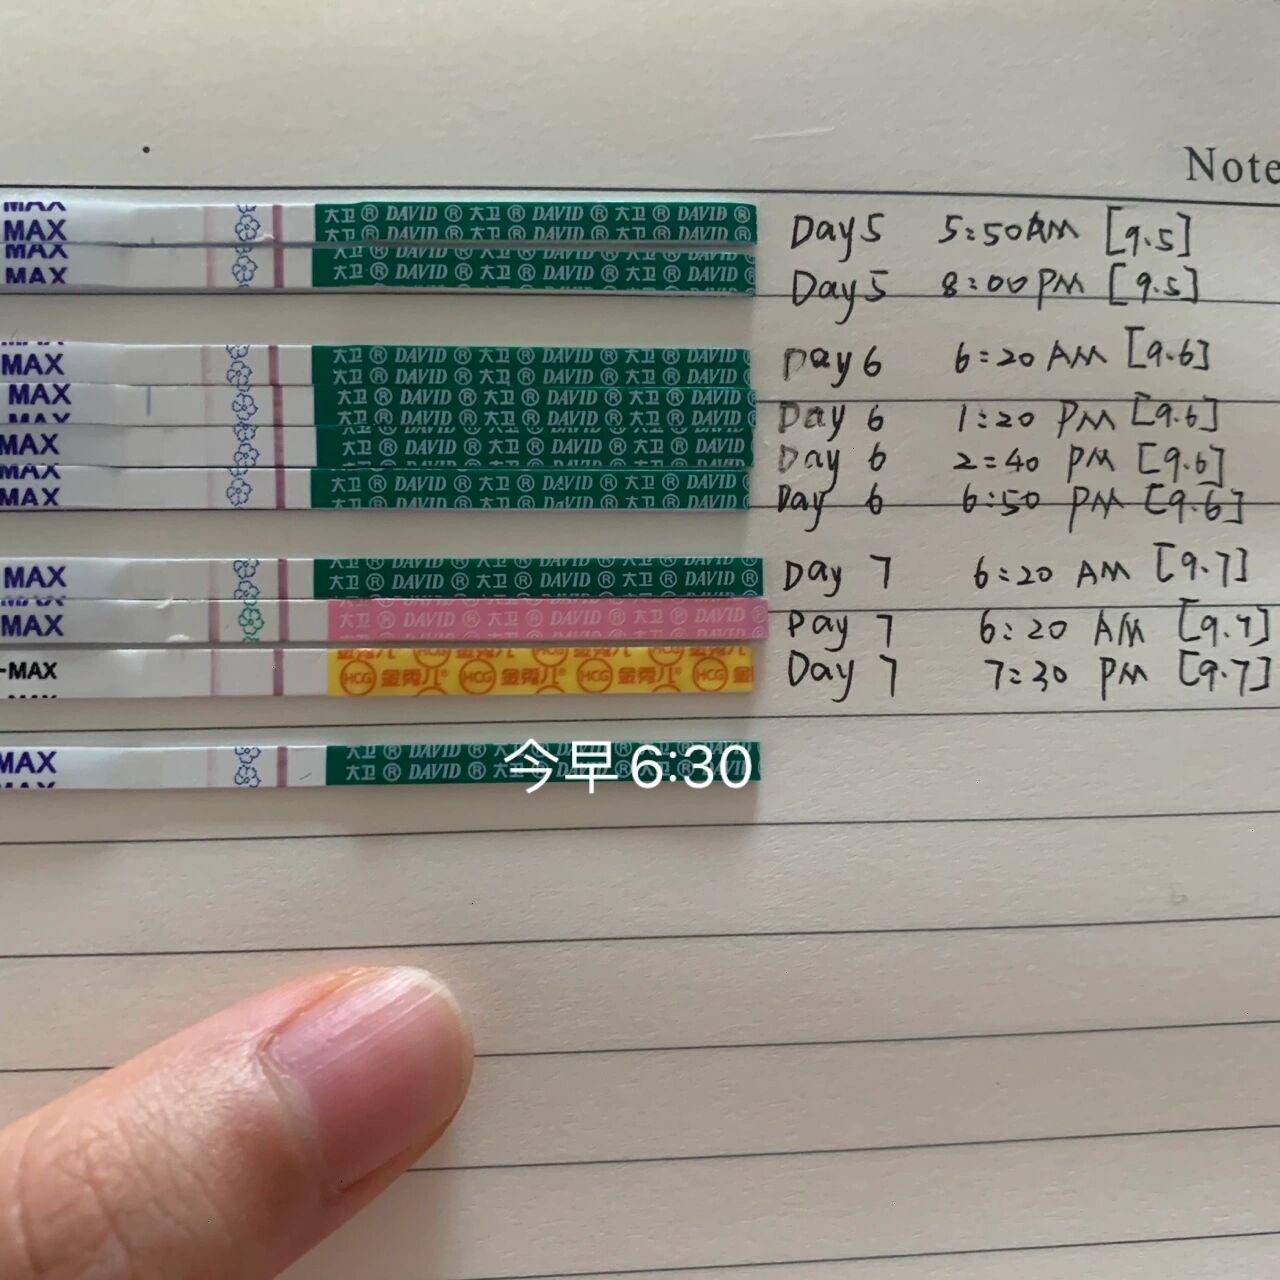 Note
MAX
MAX 大卫 ® DAVID ® 大卫 ® DAVID ® 大卫 ® DAVID ® Day 5 5:50 AM [9.5]
MAX
MAX 大卫 ® DAVID ® 大卫 ® DAVID ® 大卫 ® DAVID ® Day 5 8:00 PM [9.5]
MAX 大卫 ® DAVID ® 大卫 ® DAVID ® 大卫 ® DAVID ® Day 6 6:20 AM [9.6]
MAX 大卫 ® DAVID ® 大卫 ® DAVID ® 大卫 ® DAVID ® Day 6 1:20 PM [9.6]
MAX 大卫 ® DAVID ® 大卫 ® DAVID ® 大卫 ® DAVID ® Day 6 2:40 PM [9.6]
MAX 大卫 ® DAVID ® 大卫 ® DAVID ® 大卫 ® DAVID ® Day 6 6:50 PM [9.6]
MAX 大卫 ® DAVID ® 大卫 ® DAVID ® 大卫 ® DAVID ® Day 7 6:20 AM [9.7]
MAX 大卫 ® DAVID ® 大卫 ® DAVID ® 大卫 ® DAVID ® Day 7 6:20 AM [9.7]
-MAX HCG 金秀儿® HCG 金秀儿® HCG 金秀儿® HCG Day 7 7:30 PM [9.7]
MAX 大卫 ® DAVID ® 大卫 ® DAVID ® 大卫 ® DAVID ®
今早6:30